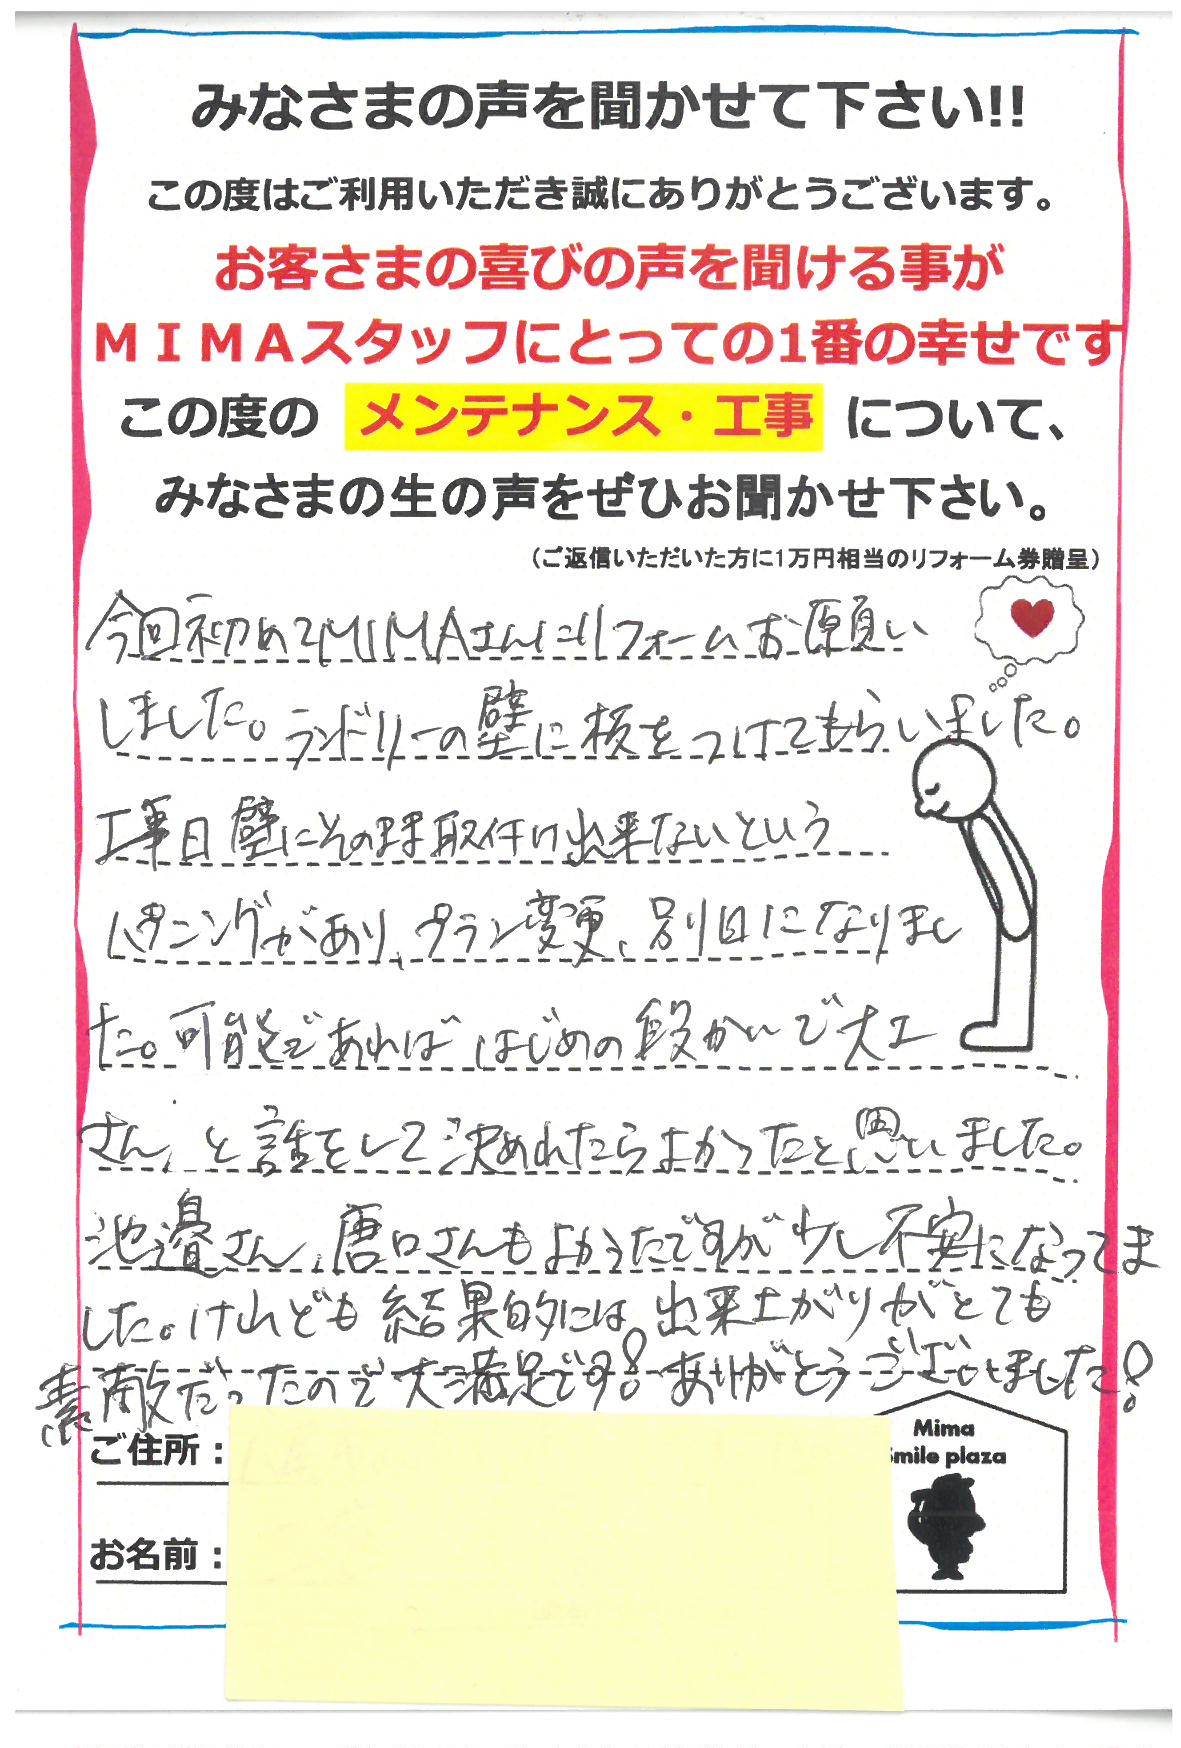 みなさまの声を聞かせて下さい!!
この度はご利用いただき誠にありがとうございます。
お客さまの喜びの声を聞ける事が
ＭＩＭＡスタッフにとっての1番の幸せです
この度の メンテナンス・工事 について、
みなさまの生の声をぜひお聞かせ下さい。
（ご返信いただいた方に1万円相当のリフォーム券贈呈）
今回初めてMIMAさんにリフォームお願い
しました。ランドリーの壁に板をつけてもらいました。
工事日壁にそのまま取付け出来ないという
ハプニングがあり、プラン変更、別日になりまし
た。可能であれば はじめの段かいで大工
さんと話をして決めれたらよかったと思いました。
池邉さん、唐口さんもよかったですが少し不安になってま
した。けれども結果的には出来上がりがとても
素敵だったので大満足です!ありがとうございました!
ご住所：
お名前：
Mima
Smile plaza